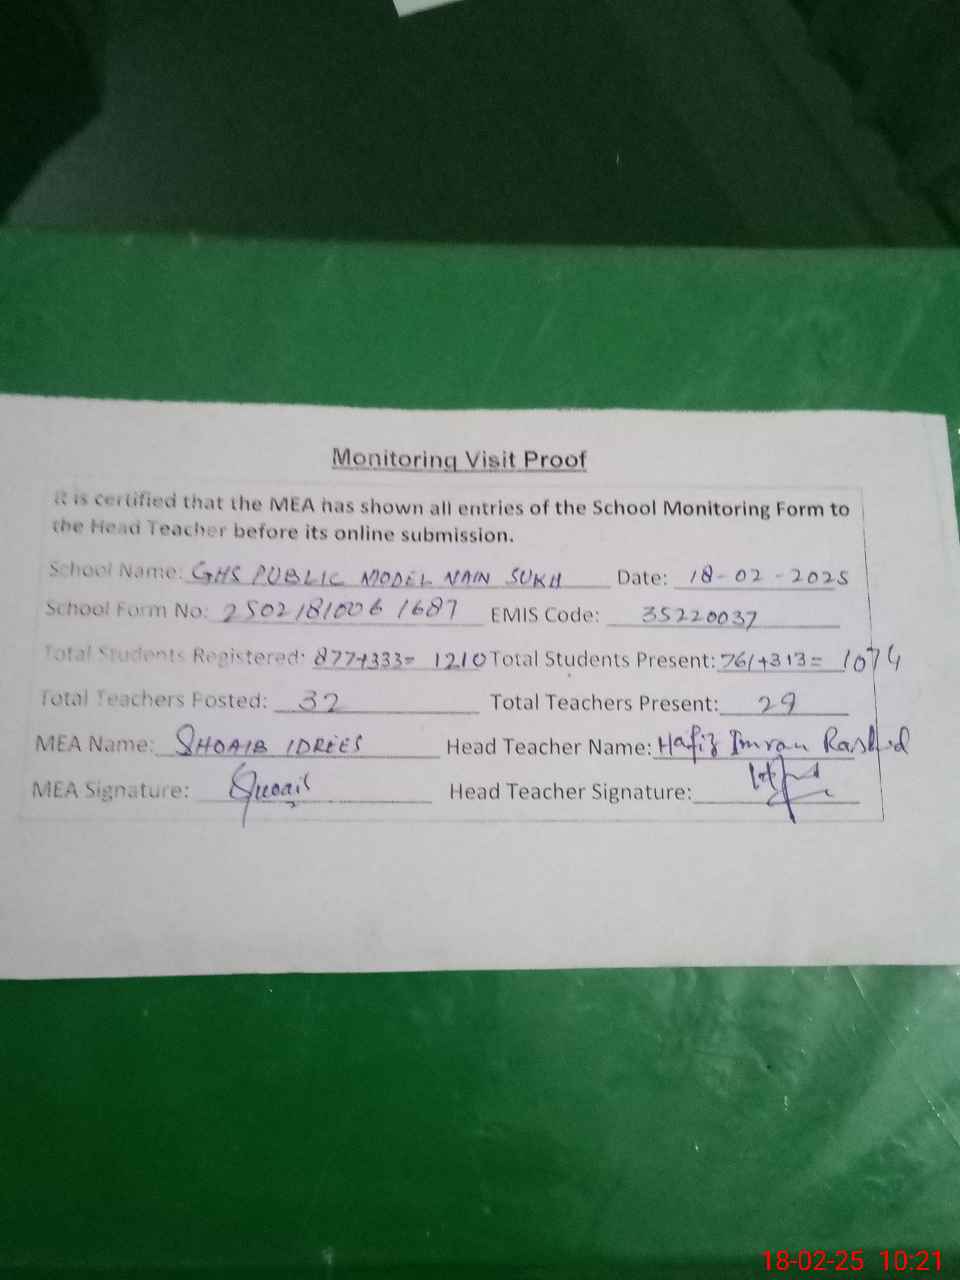 Monitoring Visit Proof
It is certified that the MEA has shown all entries of the School Monitoring Form to
the Head Teacher before its online submission.
School Name: GHS PUBLIC MODEL NAIN SUKH Date: 18-02-2025
School Form No: 25021810061687 EMIS Code: 35220037
Total Students Registered: 877+333= 1210 Total Students Present: 761+313= 1074
Total Teachers Posted: 32 Total Teachers Present: 29
MEA Name: SHOAIB IDREES Head Teacher Name: Hafiz Imran Rashid
MEA Signature: Shoaib Head Teacher Signature:
18-02-25 10:21